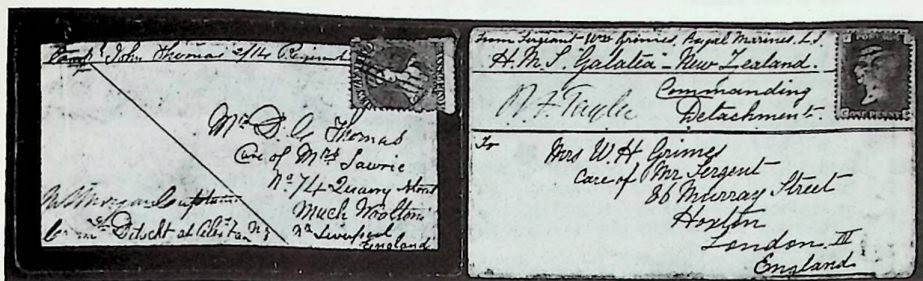 Camp John Thomas 2/14 Regiment
Mr D. G Thomas
Care of Mrs Lawrie
No 74 Quarry Street
Much Woolton
Nr Liverpool
England
Captain
Detacht at
From Sergeant Wm Grimes, Royal Marines. L.I.
H.M.S. Galatea - New Zealand.
Commanding
Detachment.
To
Mrs W. H Grimes
Care of Mr Sergent
86 Murray Street
Hoxton
London
England